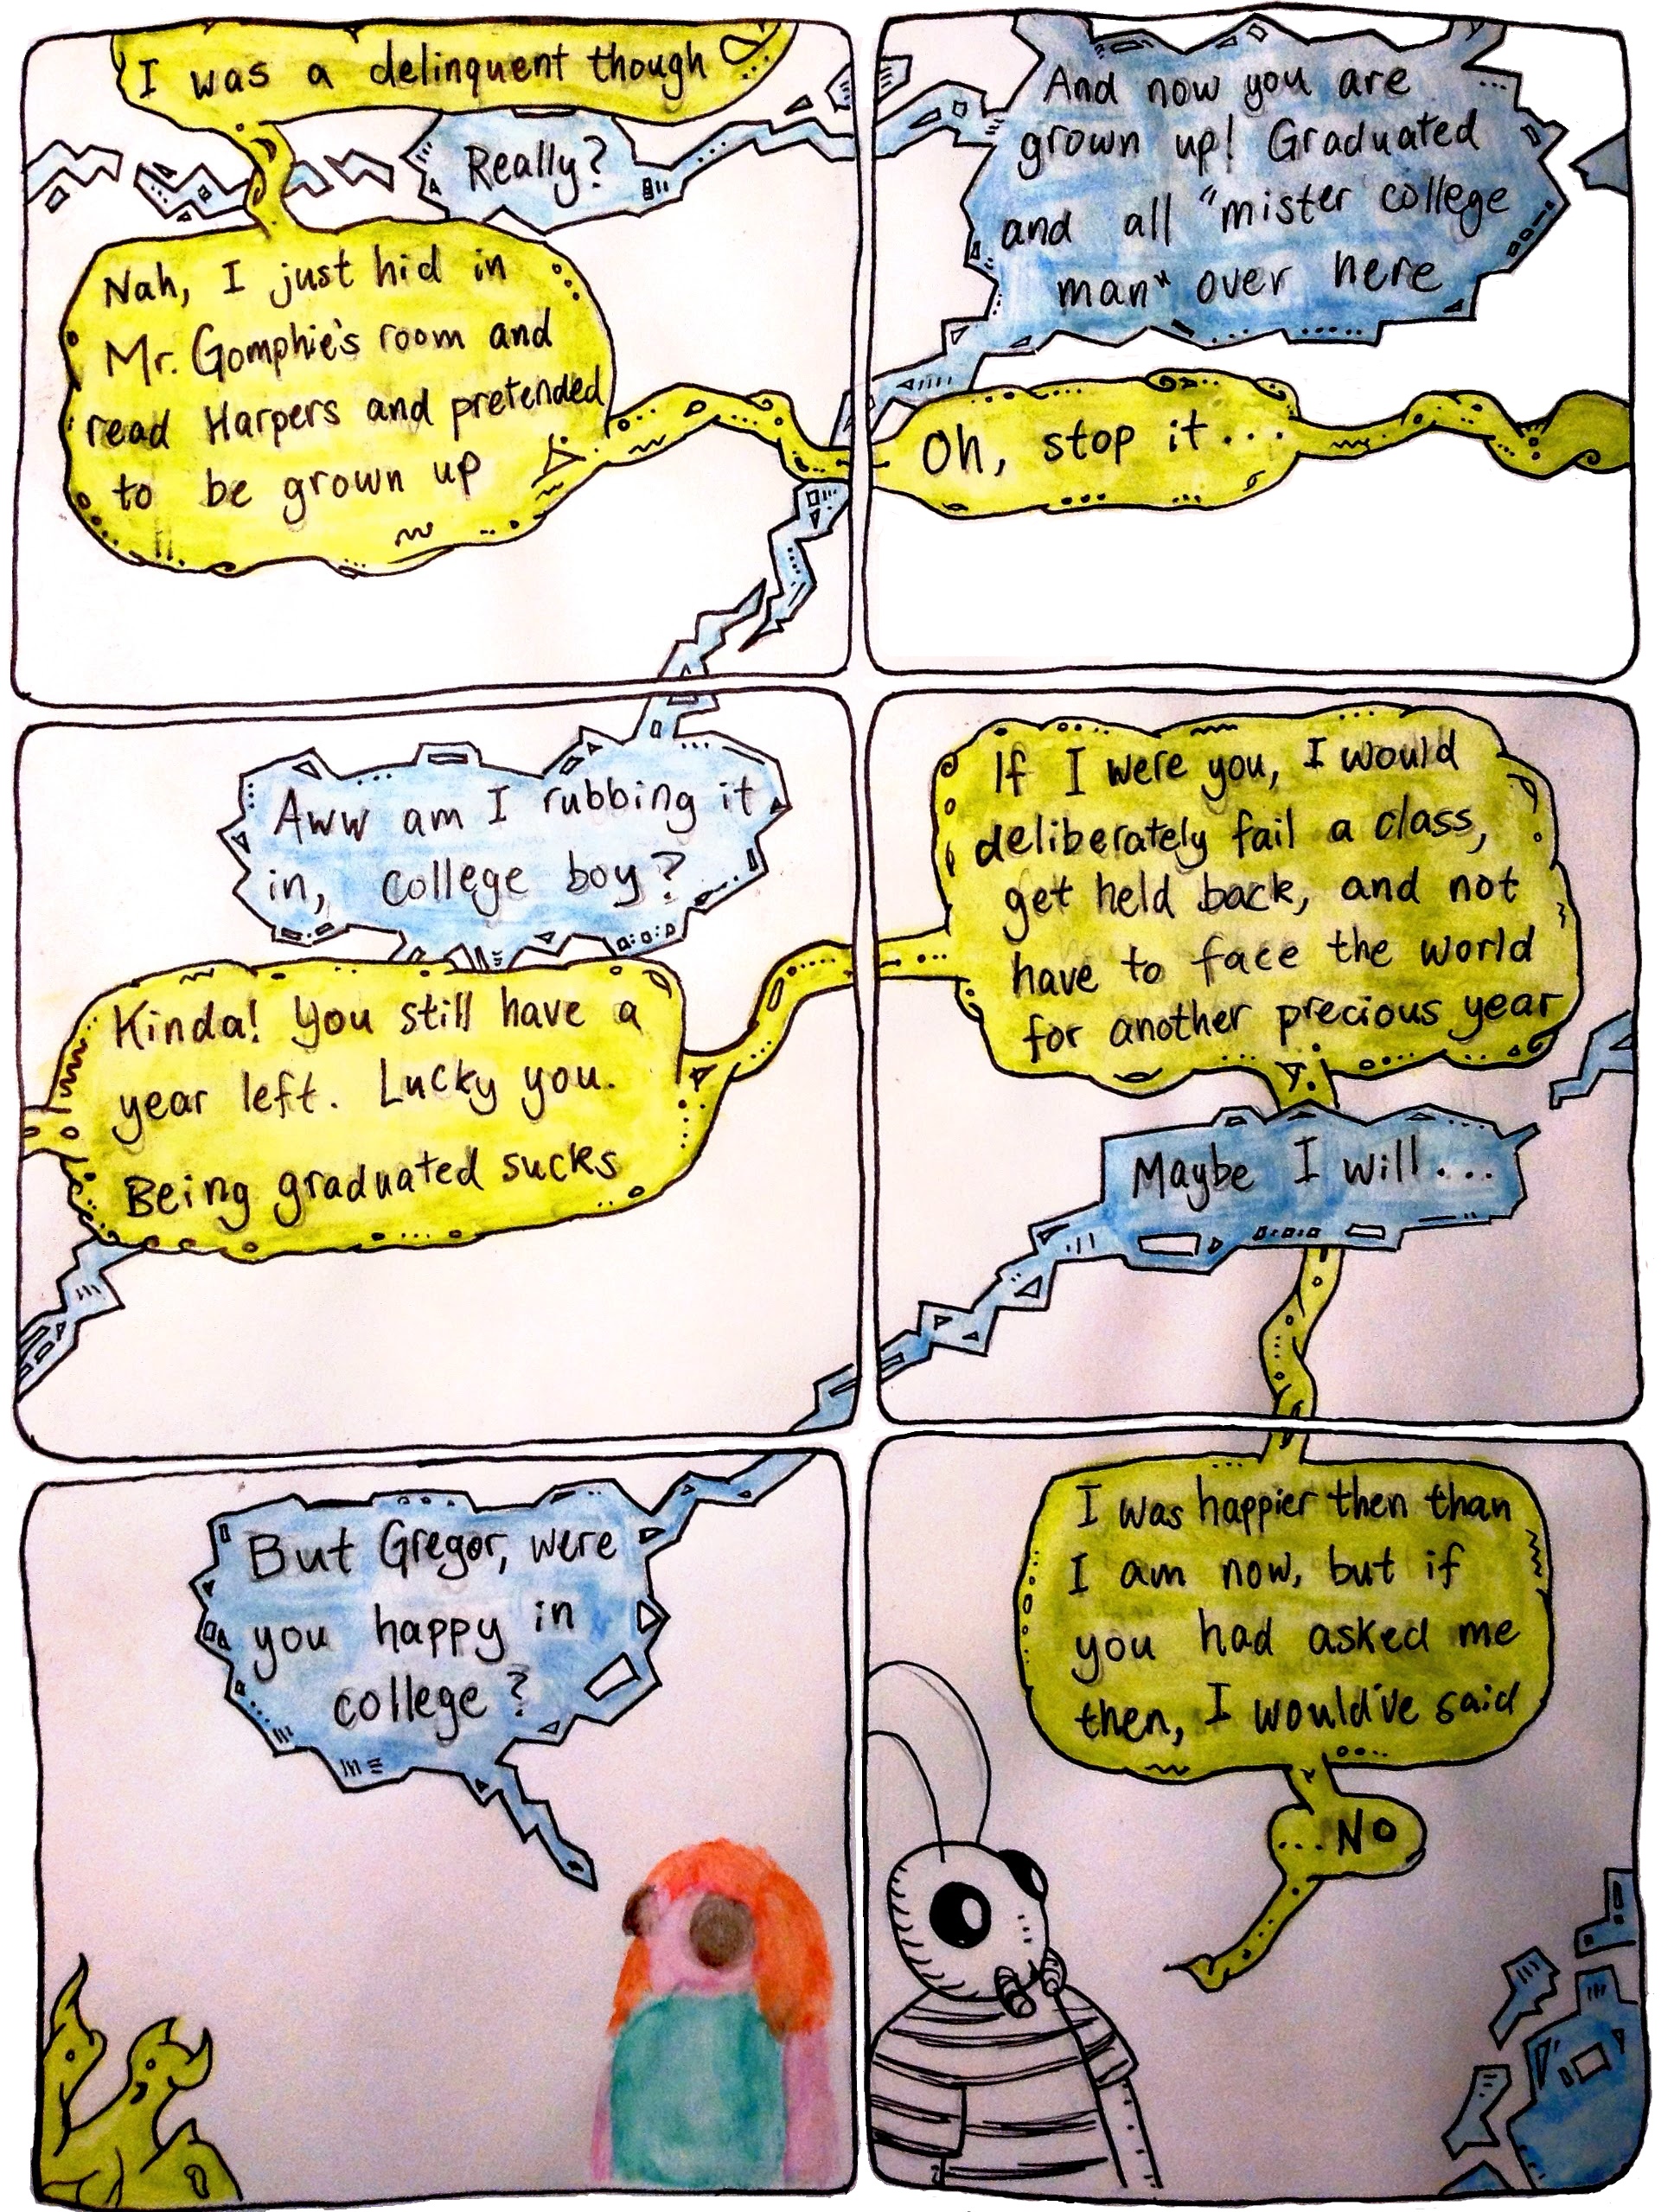 I was a delinquent though
Really?
Nah, I just hid in
Mr. Gomphie's room and
read Harpers and pretended
to be grown up
And now you are
grown up! Graduated
and all "mister college
man" over here
Oh, stop it...
Aww am I rubbing it
in, college boy?
Kinda! You still have a
year left. Lucky you.
Being graduated sucks
If I were you, I would
deliberately fail a class,
get held back, and not
have to face the world
for another precious year
Maybe I will...
But Gregor, were
you happy in
college?
I was happier then than
I am now, but if
you had asked me
then, I would've said
...NO